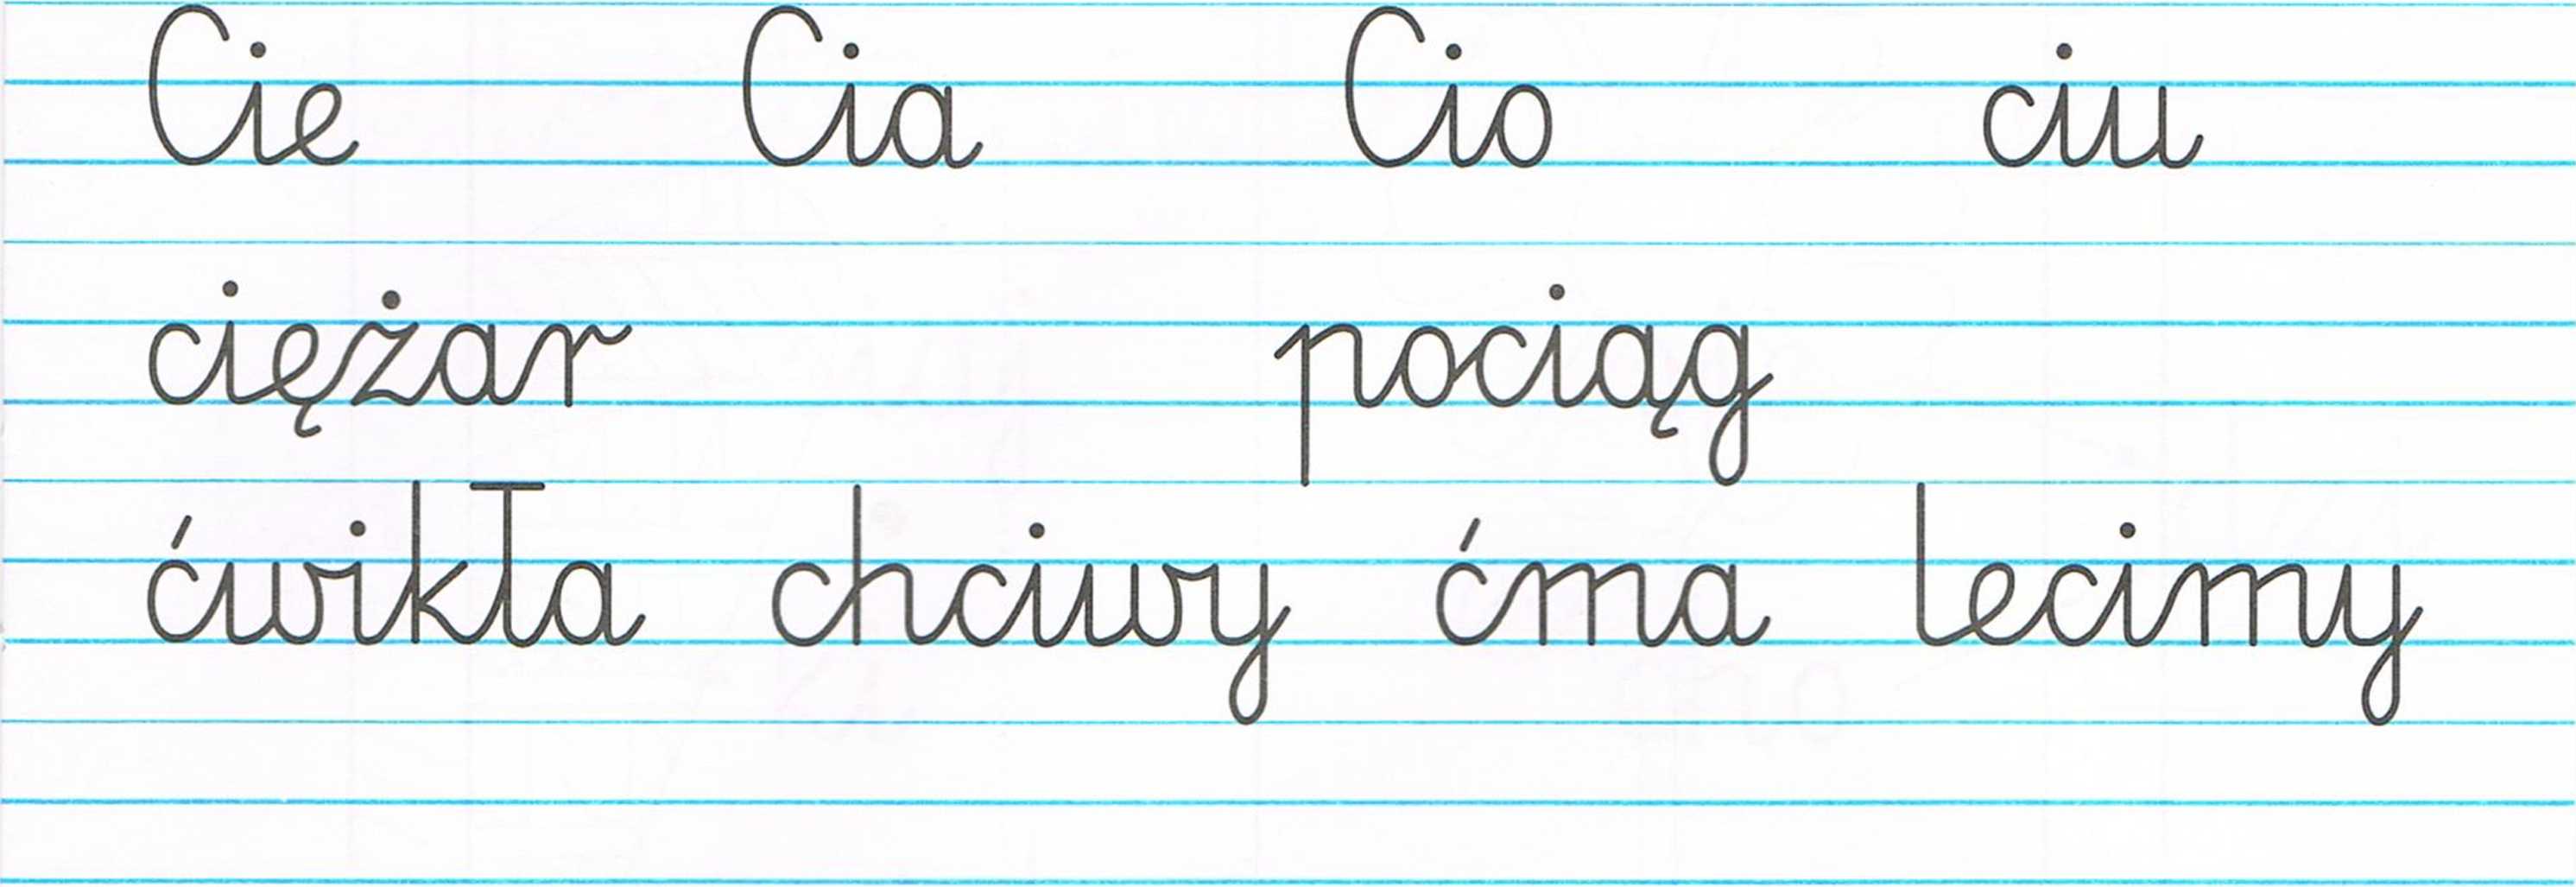 Cie Cia Cio ciu
ciężar pociąg
ćwikła chciwy ćma lecimy